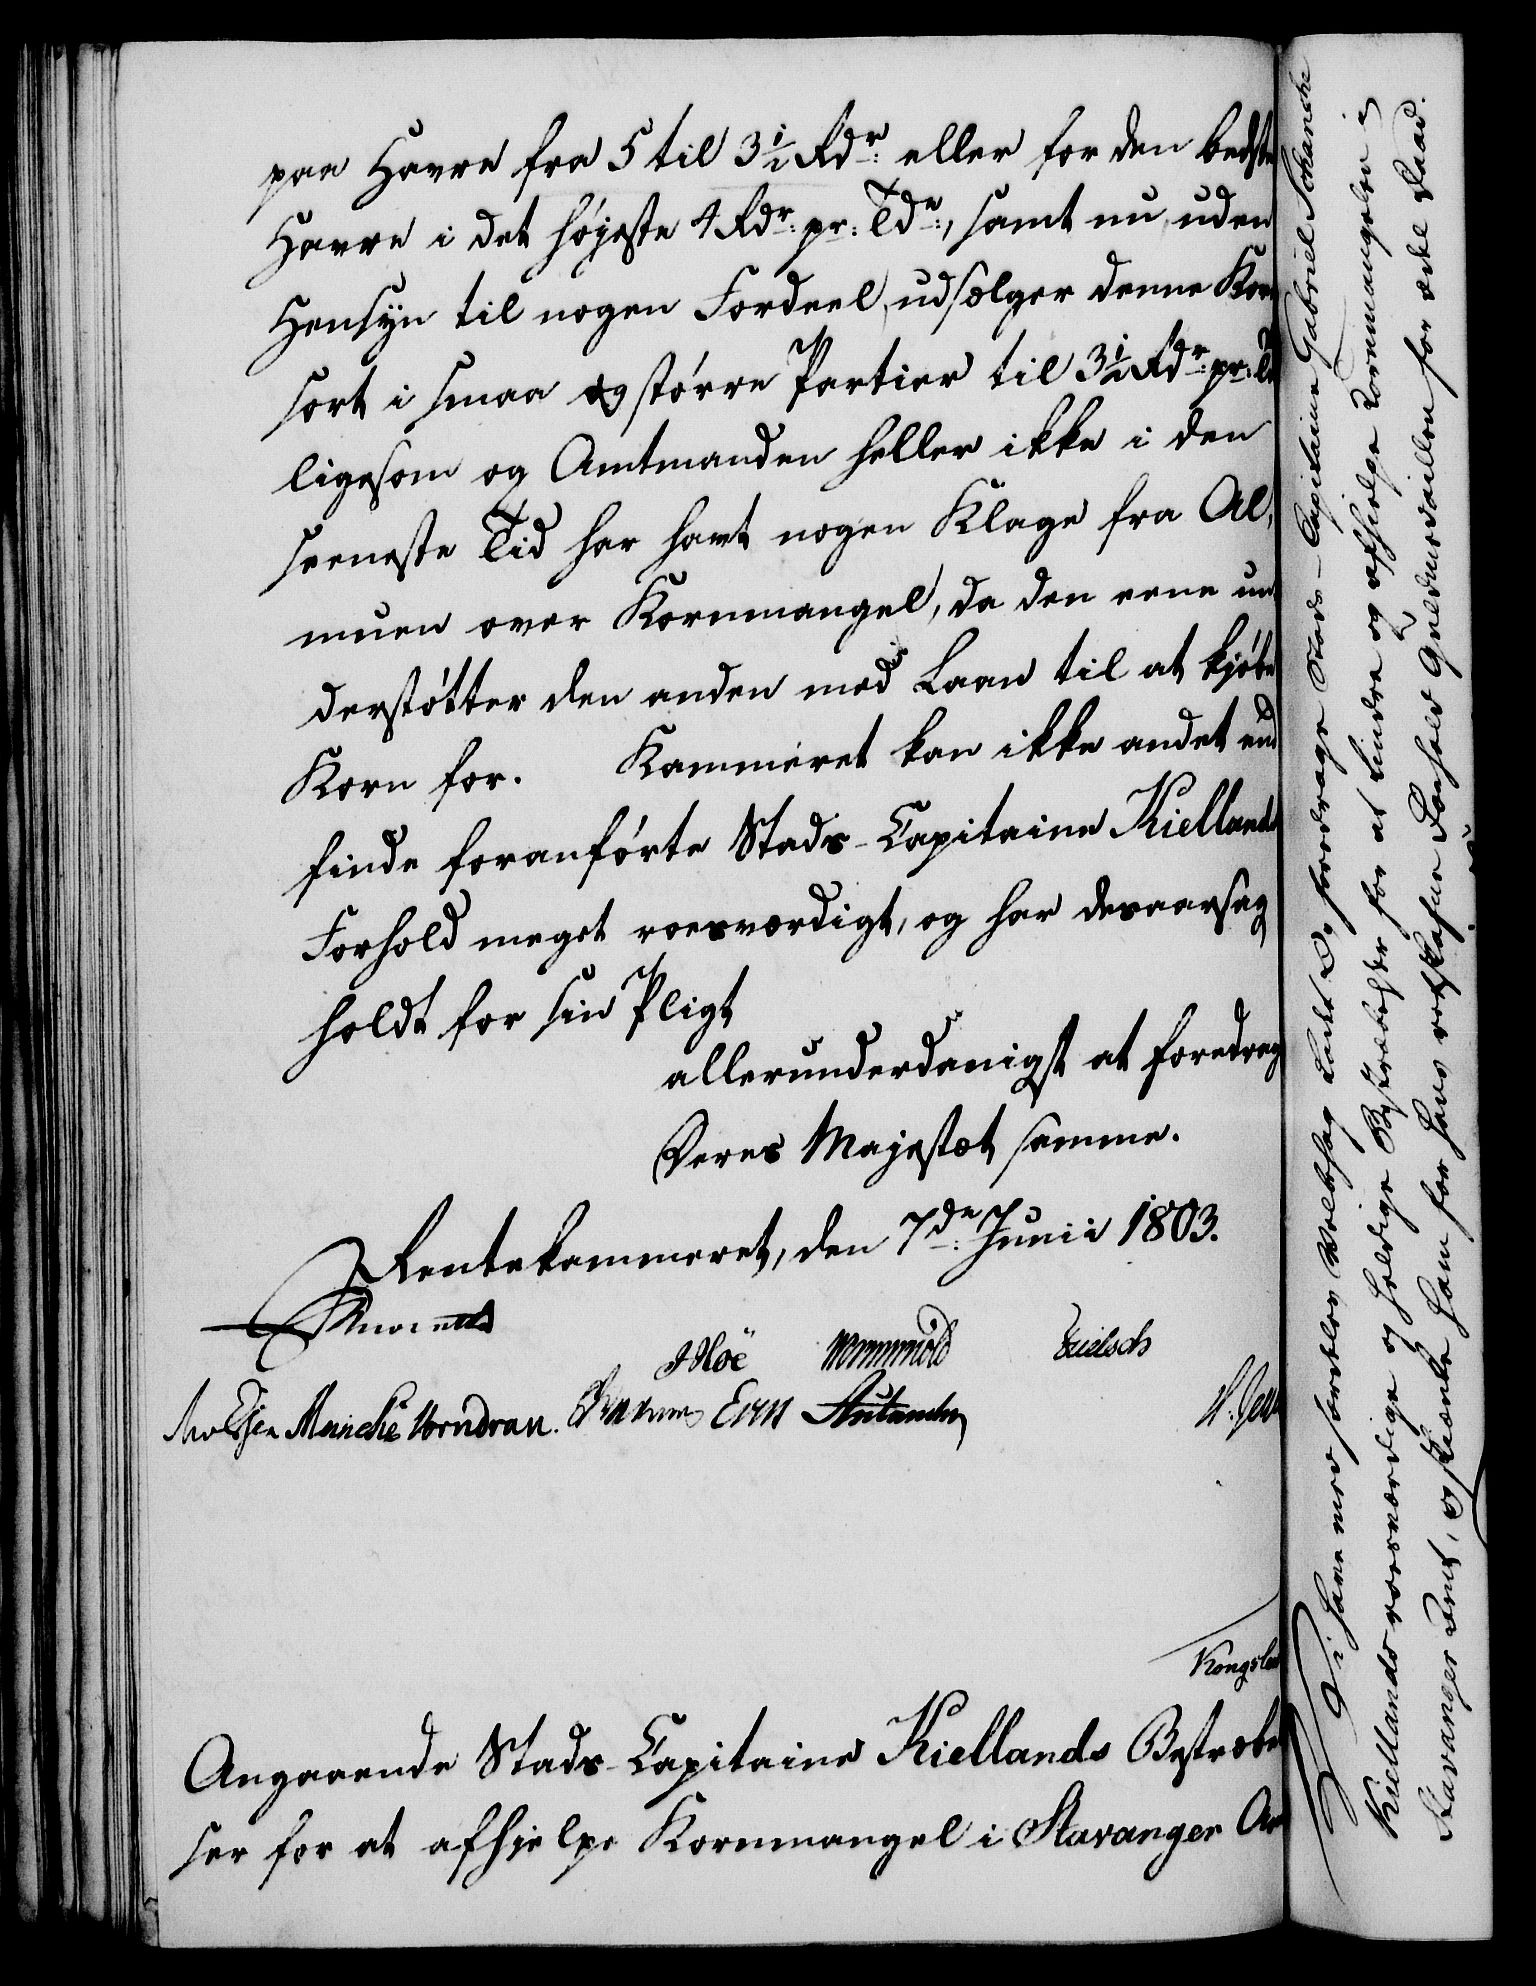 paa Havre fra 5 til 3½ Rdr: eller for den bedste
Havre i det højeste 4 Rdr: pr: Tdr:, samt nu uden
Hensÿn til nogen Fordeel, udsælger denne Korn
sort i smaa og større Partier til 3½ Rdr: pr: Td
ligesom og Amtmanden heller ikke i den
seeneste Tid har havt nogen Klage fra Al-
muen over Kornmangel, da den eene un-
derstøtter den anden med Laan til at kjøbe
Korn for. Kammeret kan ikke andet end
finde foranførte Stads-Capitaine Kiellands
Forhold meget roesværdigt, og har desaarsag
holdt for sin Pligt
allerunderdanigst at foredrag
Deres Majestæt samme.
Rentekammeret, den 7de: Junii 1803.
Hoë Wormskiold
Meinche Worndran.
Kongsb
Angaaende Stads-Capitaine Kiellands Bestræbel
ser for at afhjelpe Kornmangel i Stavanger Am
Vi have med særdeles Velbehag ladet Os foredrage Stads-Capitaine Gabriel Schanche
Kiellands roesværdige og heldige Bestræbelser for at lindre og afhjelpe Kornmangelen i
Stavanger Amt, og skienke ham for hans udviste Forhold Guldmedaillen for ædel Daad.